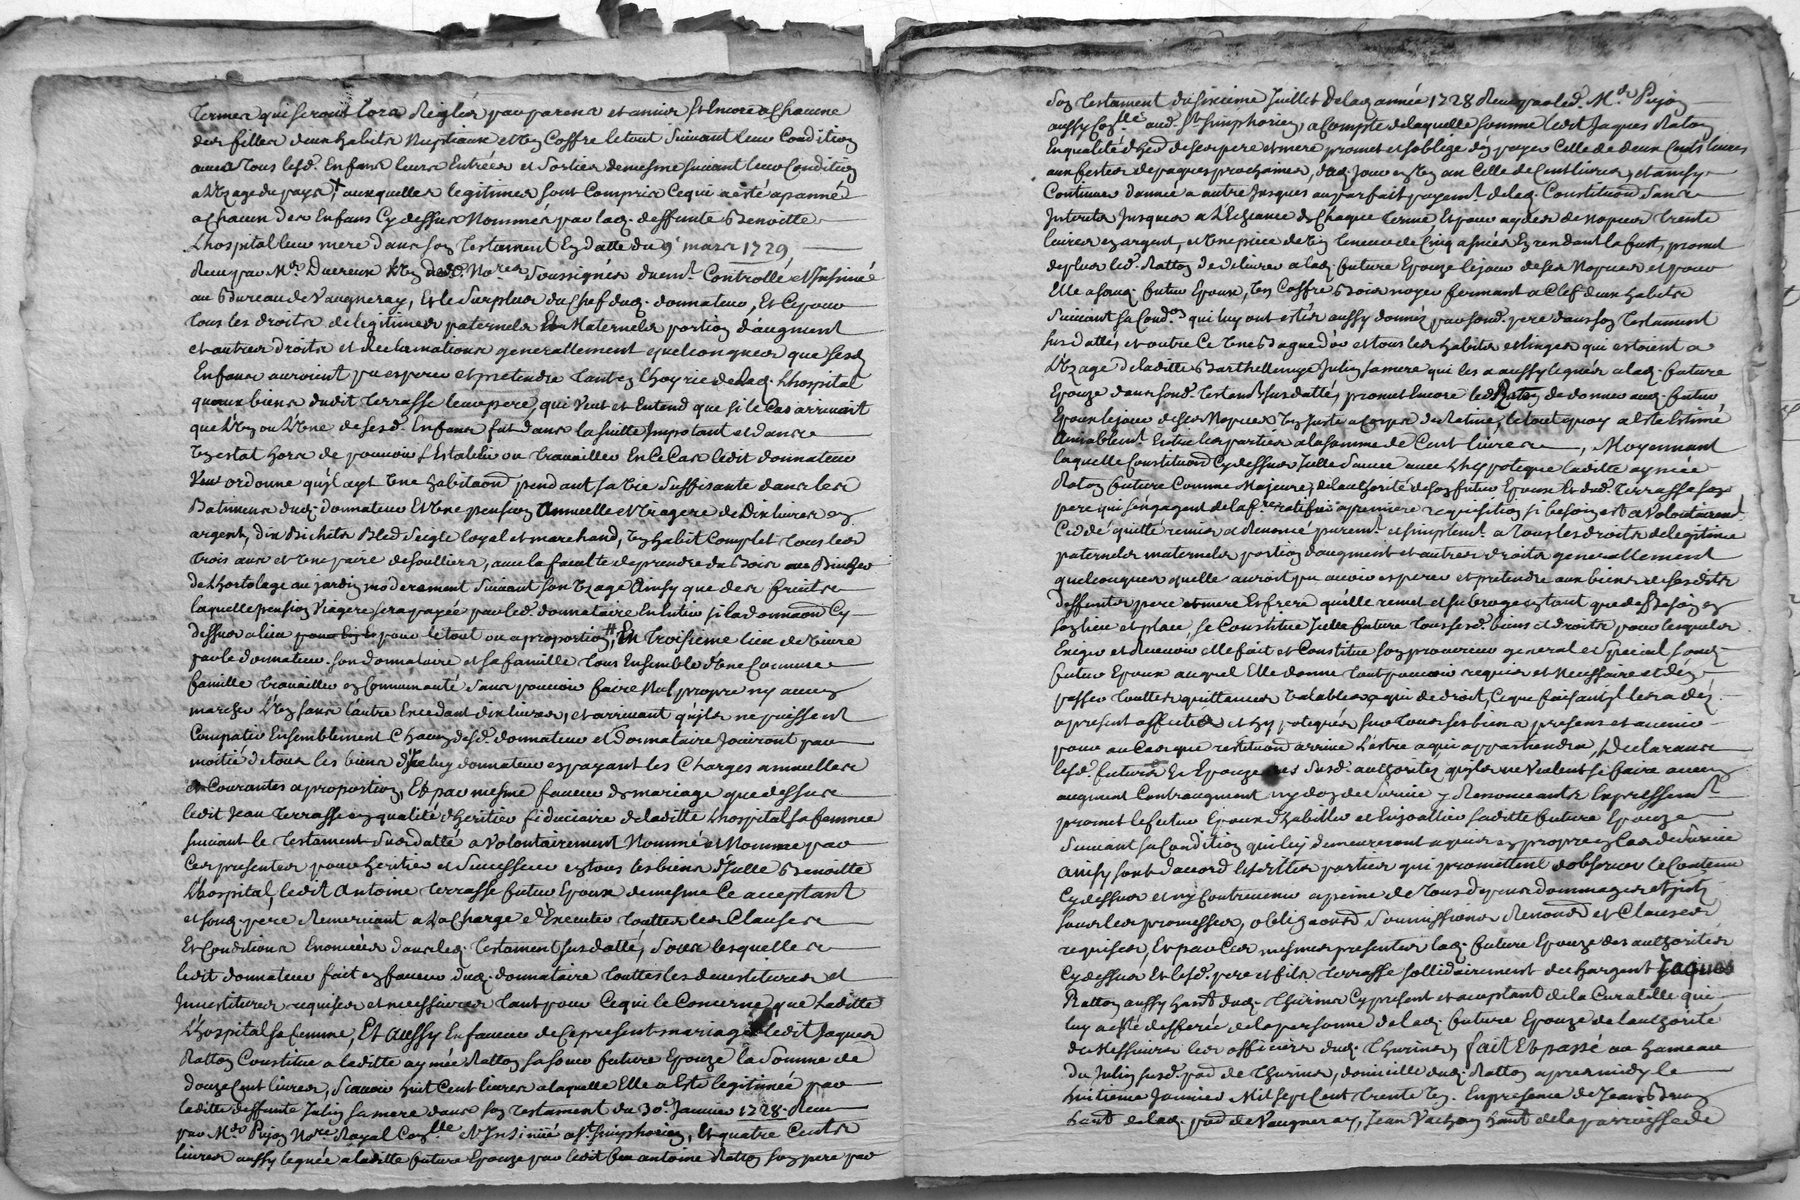 termes qui seront lors Reiglés par parens et amis Et Encore a Chacune
des filles deux habits Nuptiaux et Un Coffre le tout Suivant leur Condition
avec tous lesd. Enfans leurs Entrées et Sorties de mesme suivant leur Condition
a L'Uzage du pays + auxquelles legitimes sont Compris Ce qui a esté apanné
a Chacun des Enfans Cy dessus Nommés par lad. deffunte Benoitte
L'hospital leur mere dans son Testament En datte du 9e mars 1729
Receu par Me Ducreux L'Un desd. Nores Soussignés duemt. Controllé et Insinué
au Bureau de Vaugneray, Et le Surplus du Chef dud. donnateur, Et Ce pour
tous les droits de legitimes paternels Et Maternels portion d'augment
et autres droits et Reclamations generallement quelconques que sesd.
Enfans auroient pu esperer et pretendre tant En l'hoyrie de lad. L'hospital
qu'aux biens dudit Terrasse leur pere, qui Veut et Entend que si le Cas arrivoit
que L'Un ou L'Une de sesd. Enfans fut dans la suitte Impotant et dans
Un estat hors de pouvoir s'Establir ou travailler En Ce Cas ledit donnateur
Veut ordonne qu'il ayt Une habitaon pendant sa Vie Suffisante dans les
Batimens dud. donnateur Et Une pension Annuelle et Viagere de Dix livres en
argent, dix Bichets Bled seigle loyal et marchand, Un habit Complet tous les
trois ans et Une paire de soulliers, avec la faculté de prendre du Bois au Bucher
de L'hortolage au jardin moderament Suivant son Uzage Ainsy que des fruits
laquelle pension Viagere sera payée par led. donnataire En Entier si la donnaon Cy
dessus a lieu pour le tout ou a proportion, # En troisieme lieu de Vivre
par le donnateur son donnataire et sa famille tous Ensemble d'Une Commune
famille travailler en Communauté Sans pouvoir faire Nul propre ny aucun
marché L'Un sans l'autre Excedant dix livres, et arrivant qu'ils ne puissent
Compatir Ensemblement Chacun desd. donnateur et donnataire Jouiront par
moitié de tous les biens d'Iceluy donnateur en payant les Charges annuelles
Et Courantes a proportion, Et par mesme faveur de mariage que dessus
ledit Jean Terrasse en qualité d'heritier fiduciaire de laditte L'hospital sa femme
suivant le Testament Susdatté a Volontairement Nommé et Nomme par
Ces presentes pour heritier et Successeur en tous les biens d'Icelle Benoitte
L'hospital, ledit Antoine Terrasse futur Epoux de mesme Ce acceptant
et sond. pere Remerciant a La Charge d'Executer touttes les Clauses
Et Conditions Enoncées dans led. Testament susdatté, Sous lesquelles
ledit donnateur fait en faveur dud. donnataire touttes les devestitures et
Investitures requises et necessaires tant pour Ce qui le Concerne que Laditte
L'hospital sa femme, Et Aussy En faveur de Ce present mariage ledit Jaques
Ratton Constitue a laditte aymée Ratton sa soeur future Epouze la Somme de
douze Cent livres, Scavoir huit Cent livres a laquelle Elle a Esté legitimée par
laditte deffunte Julin sa mere dans son Testament du 30e Janvier 1728 Receu
par Me Pujon Nore Royal Conlle Et Insinué a St Simphorien, Et quatre Cents
livres aussy leguée a laditte future Epouze par ledit feu antoine Ratton son pere par
son Testament du sixieme Juillet de lad. année 1728 Receu par led. Me Pujon
aussy Conlle aud. St Simphorien, a Compte de laquelle somme ledit Jaques Ratton
En qualité d'her. de ses pere et mere promet et s'oblige d'en payer Celle de deux Cents livres
aux festes de paques prochaines, dud. jour en Un an Celle de Cent livres, et ainsy
Continuer d'année a autre Jusques au parfait payemt. de lad. Constitution Sans
Interets Jusques a L'Echeance de Chaque terme Et pour ayder de Nopces trente
livres en argent, et Une piece de Vin teneur de Cinq asnées En rendant la fust, promet
de plus led. Ratton de delivrer a lad. future Epouze le jour de ses Nopces et pour
Elle a sond. futur Epoux, Un Coffre Bois noyer fermant a Clef deux habits
Suivant sa Condon qui luy ont estés aussy donnés par sond. pere dans son Testament
susdatté, et outre Ce Une Bague d'or et tous les habits et linges qui estoient a
L'Uzage de laditte Barthellemye Julin sa mere qui les a aussy legués a lad. future
Epouze dans sond. Testamt Susdatté, promet Encore led. Ratton de donner aud. futur
Epoux le jour de ses Nopces Un Juste a Corps de Ratine, le tout quoy a Esté Estimé
Amiablemt. Entre les parties a la somme de Cent livres, Moyennant
laquelle Constitution Cy dessus Icelle Sauvée avec L'hypoteque laditte aymée
Ratton future Comme Majeure, de l'authorité de son futur Epoux Et dud. Terrasse son
pere qui s'engagent de la fre ratifier a premiere requisition si besoin est a Volontairemt
Cedé quitté remis et Renoncé puremt. et simplemt. a tous les droits de legitime
paternels maternels portion d'augment et autres droits generallement
quelconques qu'elle auroit pu avoir esperer et pretendre aux biens de sesdits
deffunts pere et mere Et frere qu'elle remet et subroge en tant que de Besoin en
son lieu et place, se Constitue Icelle future tous sesd. biens et droits pour lesquels
Exiger et Recevoir elle fait et Constitue son procureur general et Special sond.
futur Epoux auquel Elle donne tout pouvoir requis et Necessaire et d'en
passer touttes quittances Valables a qui de droit, Ce que faisant il les a dez
a present affectés et hypotequés sur tous ses biens presens et avenir
pour au Cas que restitution arrive L'estre a qui appartiendra, Declarans
lesd. futurs Epouzes Susd. authorités qu'ils ne Veulent se faire aucun
augment Contraugment ny don de survie y Renonceants Expressemt
promet le futur Epoux d'habiller et Enjoailler saditte future Epouze
Suivant sa Condition qui luy demeureront acquis en propre en Cas de Survie
ainsy sont d'acord lesdittes parties qui promettent d'observer le Contenu
Cy dessus et n'y Contrevenir a peine de tous depens dommages et Jnts
sous les promesses, obligaons Soumissions Renonons et Clauses
requises, Et par Ces mesmes presentes lad. future Epouze des authorités
Cy dessus Et lesd. pere et fils Terrasse sollidairement dechargent Jaques
Ratton aussy hant dud. Thurins Cy present et acceptant de la Curatelle qui
luy a esté defferée de la personne de lad. future Epouze de l'authorité
de Messieurs les officiers dud. Thurins, fait Et passé au hameau
du Julin susd. psse de Thurins, domicille dud. Ratton apres midy le
huitieme Janvier Mil sept Cent trente Un. En presence de Jean Brun
hant de lad. psse de Vaugneray, Jean Vachon hant de la parroisse de